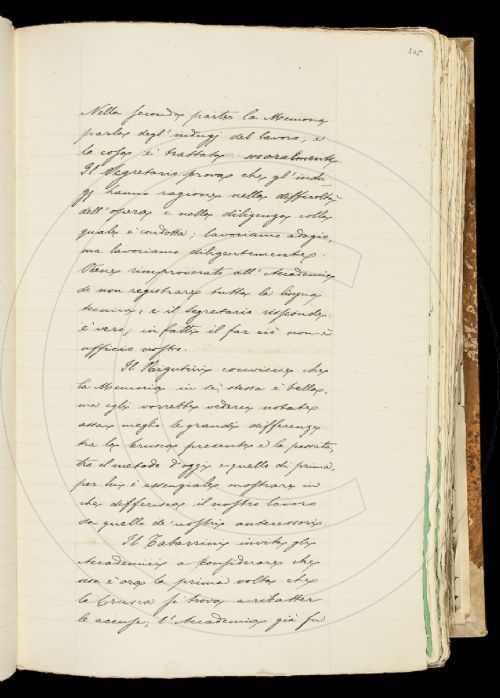 305
Nella seconda parte la Memoria
parla degl'indugj del lavoro, e
la cosa è trattata moralmente.
Il Segretario prova che gl'indu-
gj hanno ragione nella difficoltà
dell'opera e nella diligenza colla
quale è condotta; lavoriamo adagio,
ma lavoriamo diligentemente.
Viene rimproverato all'Accademia
di non registrare tutta la lingua
tecnica, e il Segretario risponde:
è vero; infatti il far ciò non è
ufficio nostro.
Il Rigutini conviene che
la Memoria in sè stessa è bella,
ma egli vorrebbe vedere notata
assai meglio la grande differenza
tra la Crusca presente e la passata,
tra il metodo d'oggi e quello di prima.
per lui è essenziale mostrare in
che differisca il nostro lavoro
da quello de' nostri antecessori.
Il Tabarrini invita gli
Accademici a considerare che
non è ora la prima volta che
la Crusca si trova a ribatter
le accuse; l'Accademia già fu